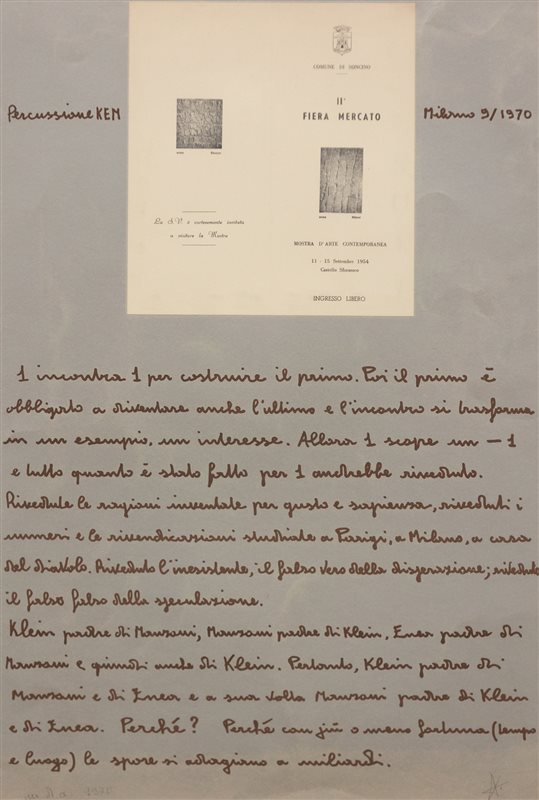 COMUNE DI SONCINO
IIª
FIERA MERCATO
Percussione KEM
Milano 9/1970
La S.V. è cortesemente invitata
a visitare la Mostra
MOSTRA D'ARTE CONTEMPORANEA
11 - 15 Settembre 1954
Castello Sforzesco
INGRESSO LIBERO
1 incontra 1 per costruire il primo. Poi il primo è
obbligato a diventare anche l'ultimo e l'incontro si trasforma
in un esempio, un interesse. Allora 1 scopre un - 1
e tutto quanto è stato fatto per 1 andrebbe riveduto.
Rivedute le ragioni inventate per gusto e sapienza, riveduti i
numeri e le rivendicazioni studiate a Parigi, a Milano, a casa
del diavolo. Riveduto l'inesistente, il falso vero della disperazione; riveduto
il falso falso della speculazione.
Klein padre di Manzoni, Manzoni padre di Klein, Enea padre di
Manzoni e quindi anche di Klein. Pertanto, Klein padre di
Manzoni e di Enea e a sua volta Manzoni padre di Klein
e di Enea. Perché? Perché con più o meno fortuna (tempo
e luogo) le spore si adagiano a miliardi.